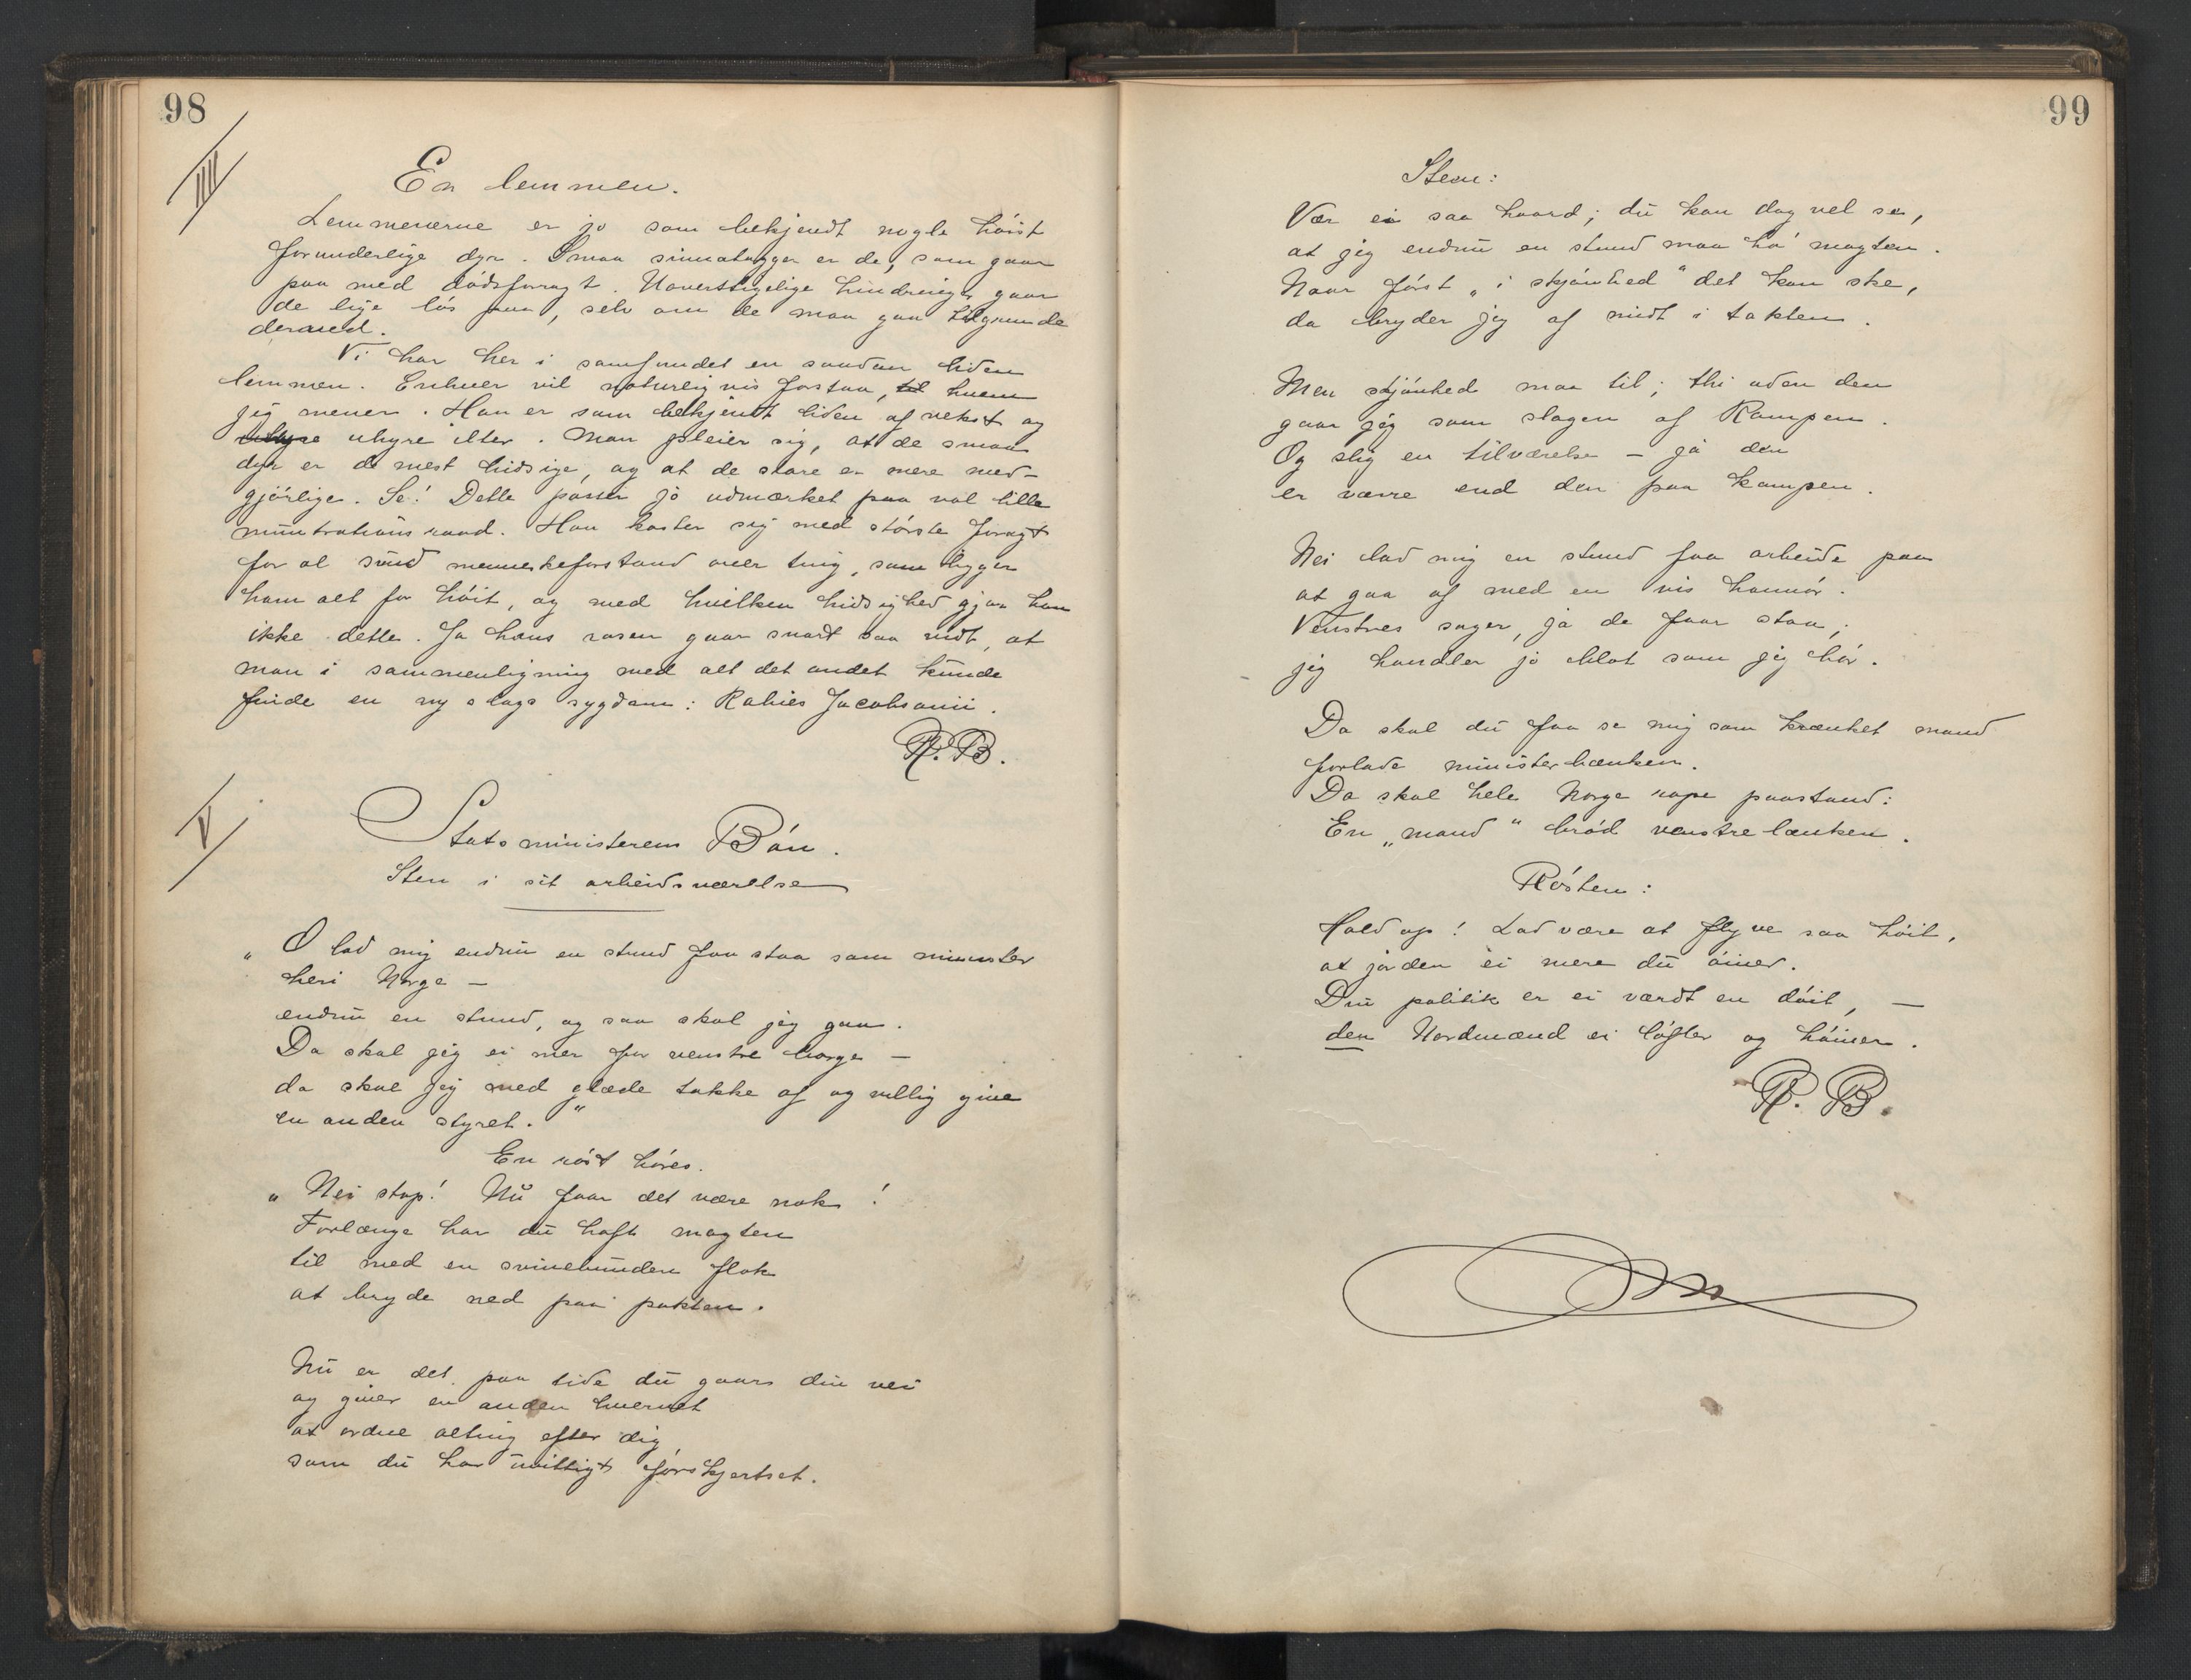 98
III
En lemmen.
Lemmenerne er jo som bekjendt nogle høist
forunderlige dyr. Smaa sinnatagger er de, som gaar
paa med dødsforagt. Uoverstigelige hindringer gaar
de lige løs paa, selv om de maa gaa tilgrunde
derved.
Vi har her i samfundet en saadan liden
lemmen. Enhver vil naturligvis forstaa, hvem
jeg mener. Han er som bekjendt liden af vekst og
uhyre ilter. Man pleier sig, at de smaa
dyr er de mest hidsige, og at de store er mere med-
gjørlige. Se! Dette passer jo udmærket paa vol lille
raad. Han kaster sig med største foragt
for al sund menneskeforstand over ting, som ligger
ham alt for høit, og med hvilken hidsighed gjør han
ikke dette. Ja hans rasen gaar snart saa vidt, at
man i sammenligning med alt det andet kunde
finde en ny slags sygdom: Rabies Jacobsonii.
R. B.
V
Statsministerens Bøn.
Sten i sit arbeidsværelse
„O lad mig endnu en stund faa staa som minister
heri Norge –
endnu en stund, og saa skal jeg gaa.
Da skal jeg ei mer for venstre borge –
da skal jeg med glæde takke af og villig give
en anden styret."
En røst høres.
„Nei stop! Nu faar det være nok!
Forlænge har du haft magten
til med en svinebunden flok
at bryde ned paa pakten.
Nu er det paa tide du gaar din vei
og giver en anden hvervet
at ordne alting efter dig
som du har uvittigt forskjertset.
99
Sten:
Vær ei saa haard; du kan dog vel se,
at jeg endnu en stund maa ha' magten.
Naar først „i skjønhed" det kan ske,
da bryder jeg af midt i takten.
Men skjønhed maa til; thi uden den
gaar jeg som slagen af Kampen.
Og slig en tilværelse – ja den
er værre end den paa kampen.
Nei lad mig en stund faa arbeide paa
at gaa af med en vis honnør.
Venstres sager, ja de faar staa;
jeg handler jo blot som jeg bør.
Da skal du faa se mig som krænket mand
forlade ministerbænken.
Da skal hele Norge rope paastand:
En „mand" brød venstrelænken.
Røsten:
Hold op! Lad være at flyve saa høit,
at jorden ei mere du øiner.
Din politik er ei værdt en døit, –
den Nordmænd ei løfter og høiner.
R. B.